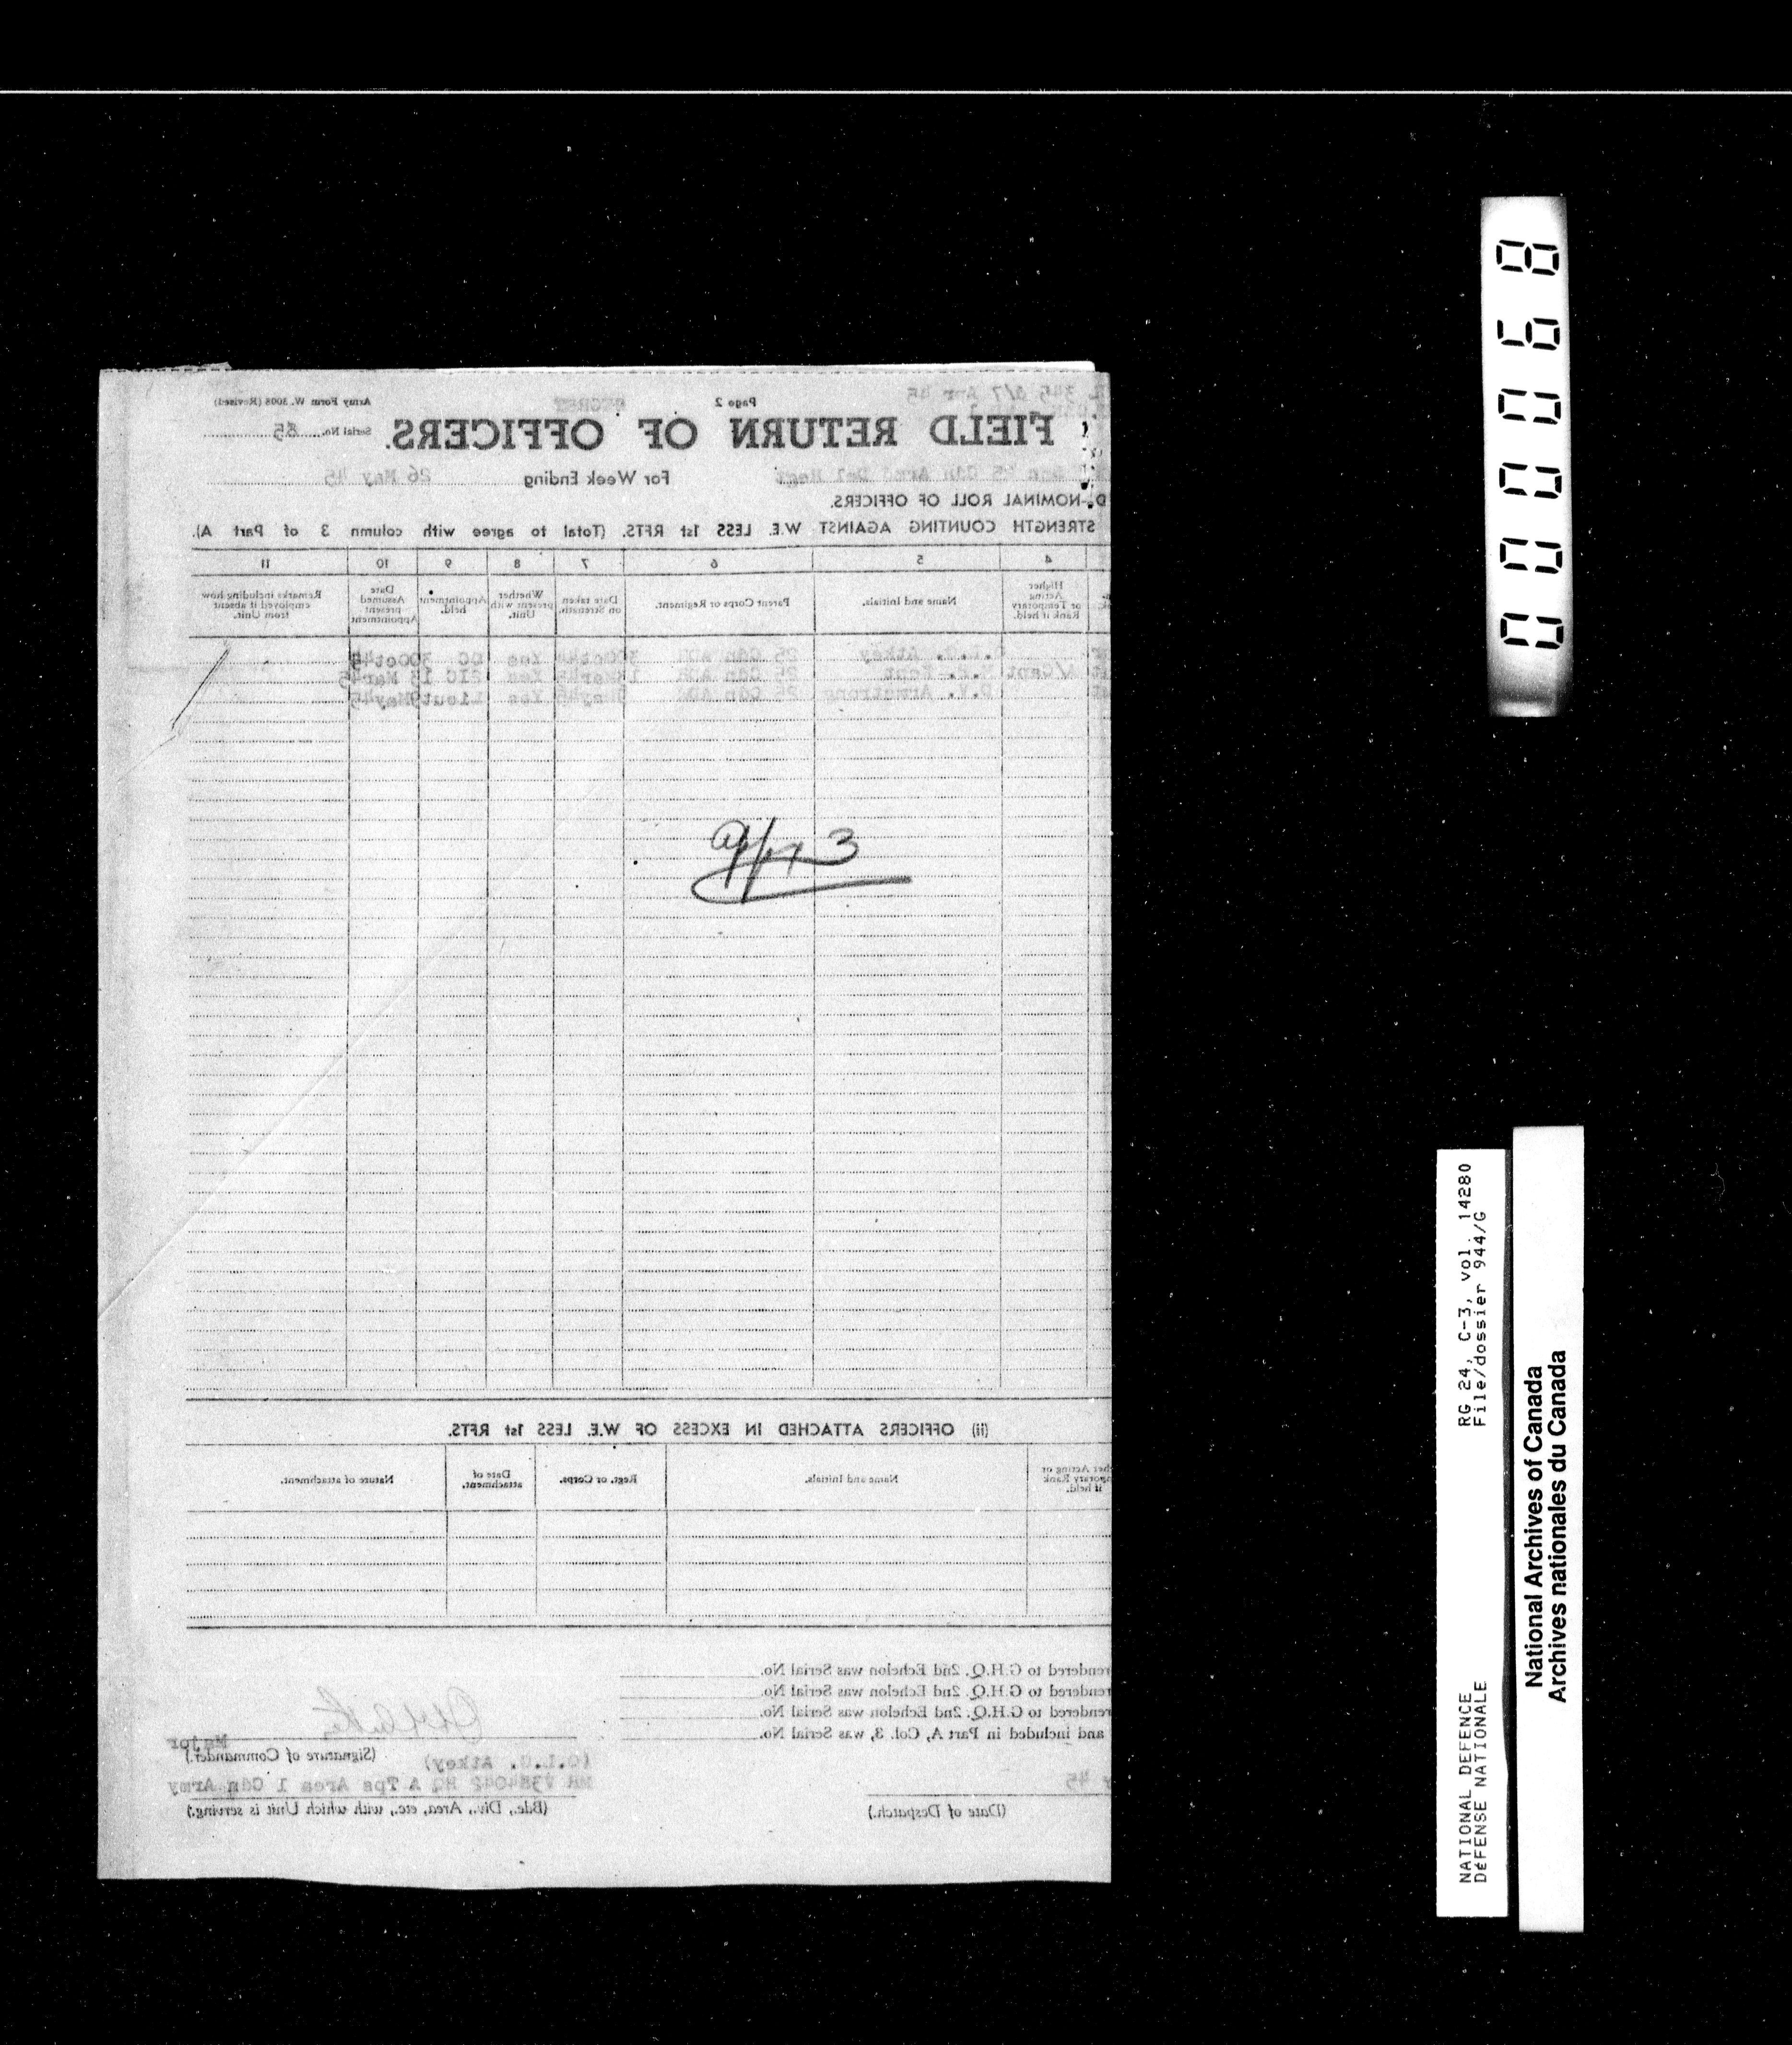 Page 2
Army Form W. 3008 (Revised)
FIELD RETURN OF OFFICERS.
Serial No. 85
Cdn Armd Del Regt
For Week Ending 26 May 45
D.-NOMINAL ROLL OF OFFICERS.
STRENGTH COUNTING AGAINST W.E. LESS 1st RFTS. (Total to agree with column 3 of Part A).
4 5 6 7 8 9 10 11
Higher Acting or Temporary Rank if held.
Name and Initials.
Parent Corps or Regiment.
Date taken on Strength.
Whether present with Unit.
Appointment held.
Date Assumed present Appointment
Remarks including how employed if absent from Unit.
Atkey 25 Cdn 30Oct44 Yes OC 30Oct44
A/Capt 25 Cdn Yes 2IC 13 Mar45
D.Y. Armstrong 25 Cdn Yes Lieut 9May45
App 3
(ii) OFFICERS ATTACHED IN EXCESS OF W.E. LESS 1st RFTS.
Acting or
Rank
if held.
Name and Initials.
Regt. or Corps.
Date of attachment.
Nature of attachment.
rendered to G.H.Q. 2nd Echelon was Serial No.
rendered to G.H.Q. 2nd Echelon was Serial No.
rendered to G.H.Q. 2nd Echelon was Serial No.
and included in Part A, Col. 3, was Serial No.
Major
(Signature of Commander.)
Atkey)
HQ A Tps Area 1 Cdn Army
(Bde., Div., Area, etc., with which Unit is serving.)
45
(Date of Despatch.)
000068
RG 24, C-3, vol. 14280
File/dossier 944/G
NATIONAL DEFENCE
DÉFENSE NATIONALE
National Archives of Canada
Archives nationales du Canada